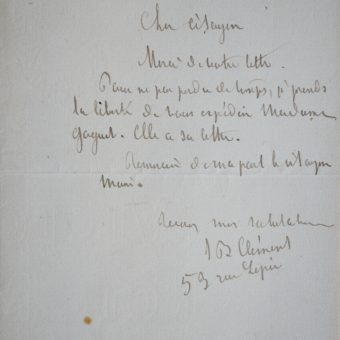 Cher citoyen
Merci de votre lettre.
Pour ne pas perdre de temps, je prends
la liberté de vous expédier Madame
Elle a sa lettre.
de ma part le citoyen
Recevez mes salutations
J B Clément
53 rue Lepic